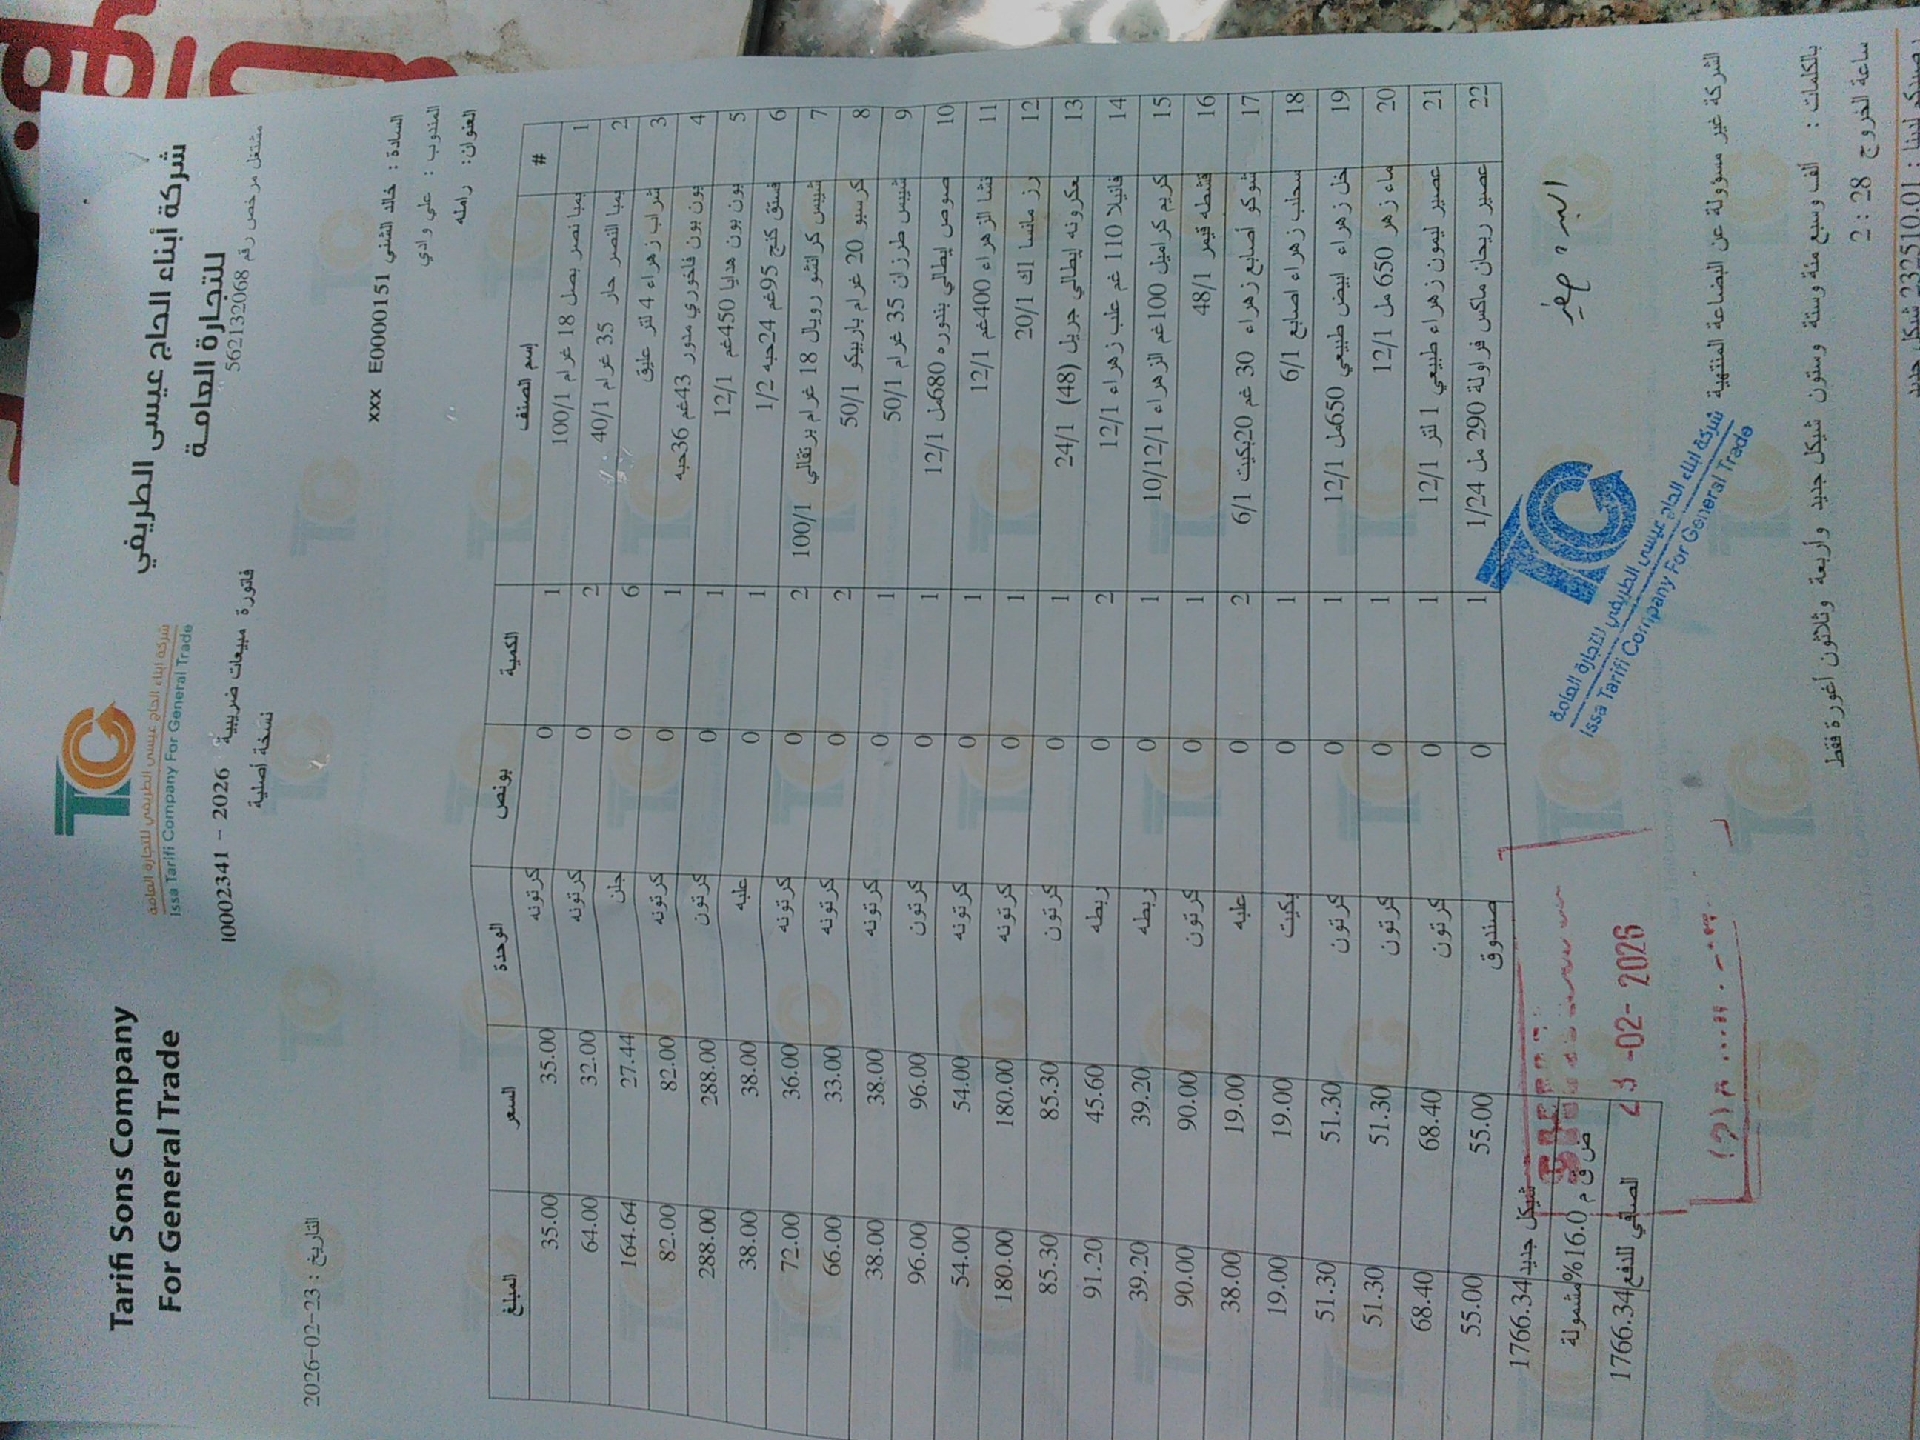 Tarifi Sons Company
For General Trade
شركة ابناء الحاج عيسى الطريفي للتجارة العامة
Issa Tarifi Company For General Trade
شركة أبناء الحاج عيسى الطريفي
للتجارة العامة
مشتغل مرخص رقم 562132068
فاتورة مبيعات ضريبية 2026 - 10002341
نسخة أصلية
التاريخ : 2026-02-23
السادة : خالد الشني E00000151 xxx
المندوب : علي وادي
العنوان: رامله
# إسم الصنف الكمية بونص الوحدة السعر المبلغ
1 يمبا نصر بصل 18 غرام 100/1 1 0 كرتونه 35.00 35.00
2 يمبا النصر حار 35 غرام 40/1 2 0 كرتونه 32.00 64.00
3 شراب زهراء 4 لتر عليق 6 0 جلن 27.44 164.64
4 بون بون فاخوري مدور 43غم 36حبه 1 0 كرتونه 82.00 82.00
5 بون بون هدايا 450غم 12/1 1 0 كرتون 288.00 288.00
6 فستق كنج 95غم 24حبه 1/2 1 0 علبه 38.00 38.00
7 شيبس كرانشو رويال 18 غرام برتقالي 100/1 2 0 كرتونه 36.00 72.00
8 كرسبو 20 غرام باربيكو 50/1 2 0 كرتونه 33.00 66.00
9 شيبس طرزان 35 غرام 50/1 1 0 كرتونه 38.00 38.00
10 صوص ايطالي بندوره 680مل 12/1 1 0 كرتون 96.00 96.00
11 نشا الزهراء 400غم 12/1 1 0 كرتونه 54.00 54.00
12 رز مانسا 1ك 20/1 1 0 كرتونه 180.00 180.00
13 معكرونه ايطالي جريل (48) 24/1 1 0 كرتون 85.30 85.30
14 فانيلا 110 غم علب زهراء 12/1 2 0 ربطه 45.60 91.20
15 كريم كراميل 100غم الزهراء 10/12/1 1 0 ربطه 39.20 39.20
16 قشطه قيمر 48/1 1 0 كرتون 90.00 90.00
17 شوكو أصابع زهراء 30 غم 20بكيت 6/1 2 0 علبه 19.00 38.00
18 سحلب زهراء اصابع 6/1 1 0 بكيت 19.00 19.00
19 خل زهراء ابيض طبيعي 650مل 12/1 1 0 كرتون 51.30 51.30
20 ماء زهر 650 مل 12/1 1 0 كرتون 51.30 51.30
21 عصير ليمون زهراء طبيعي 1 لتر 12/1 1 0 كرتون 68.40 68.40
22 عصير ريحان ماكس فراولة 290 مل 1/24 1 0 صندوق 55.00 55.00
شيكل جديد 1766.34
ض ق م 16.0% مشمولة
الصافي للدفع 1766.34
23 -02- 2026
شركة ابناء الحاج عيسى الطريفي للتجارة العامة
Issa Tarifi Company For General Trade
الشركة غير مسوولة عن البضاعة المنتهية
بالكلمات : ألف وسبع مئة وستة وستون شيكل جديد وأربعة وثلاثون أغورة فقط
ساعة الخروج 2 : 28
رصيدكم لدينا : 232510.01 شيكل جديد